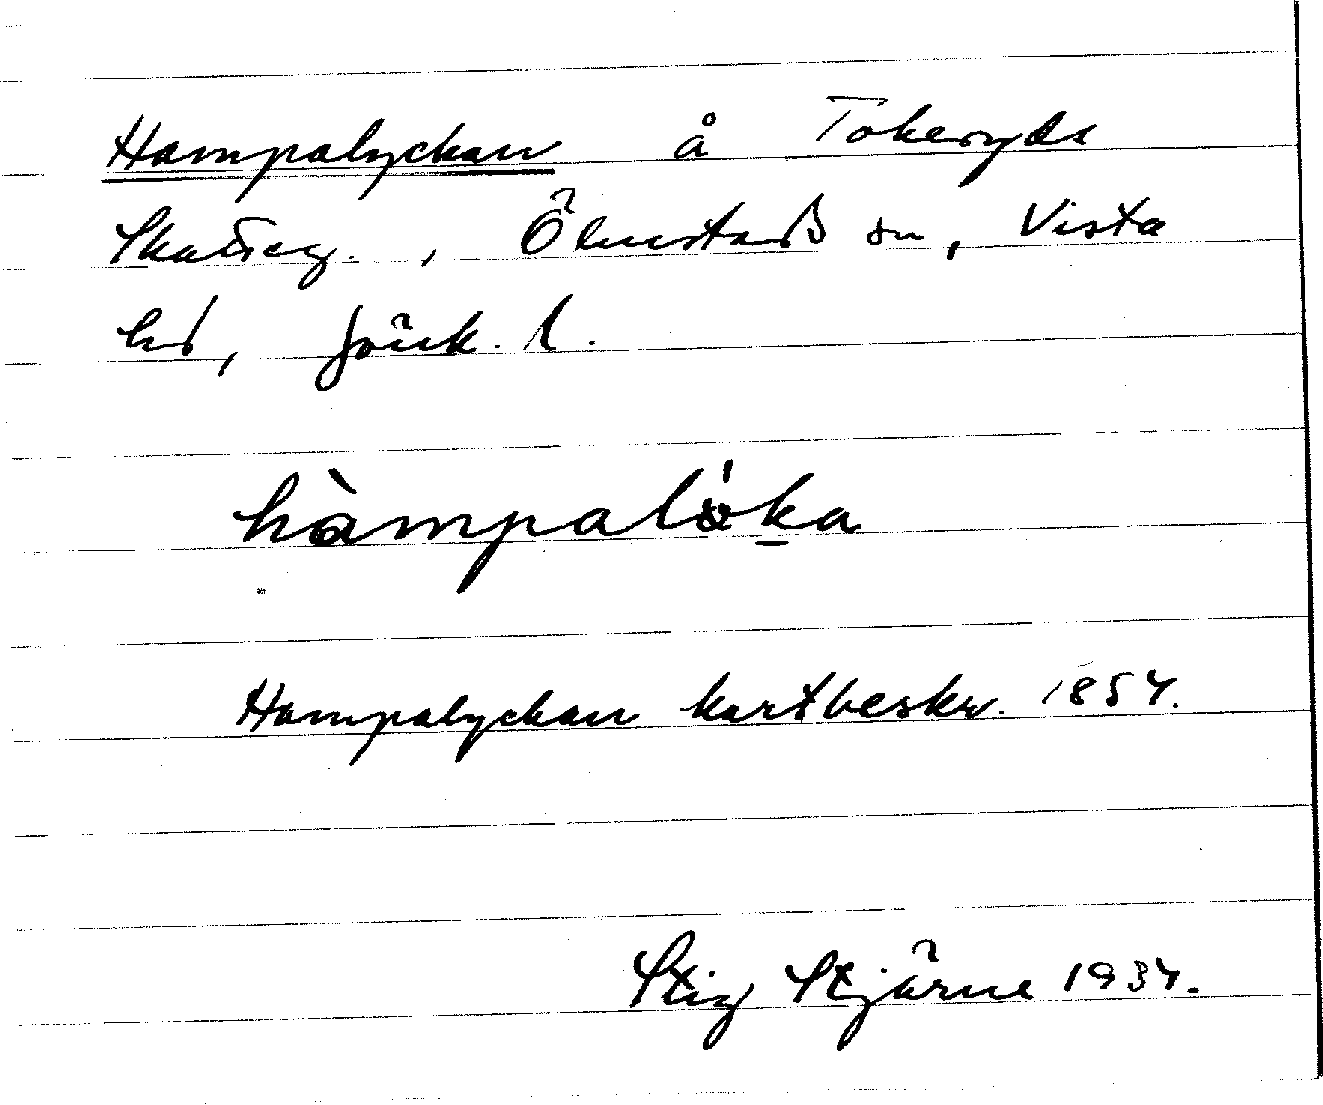 Hampalyckan å Tokeryds
Skatteg., Ölmstad sn, Vista
hd, Jönk. l.
hàmpalö̀ka
Hampalyckan kartbeskr. 1854.
Stig Stjärne 1934.